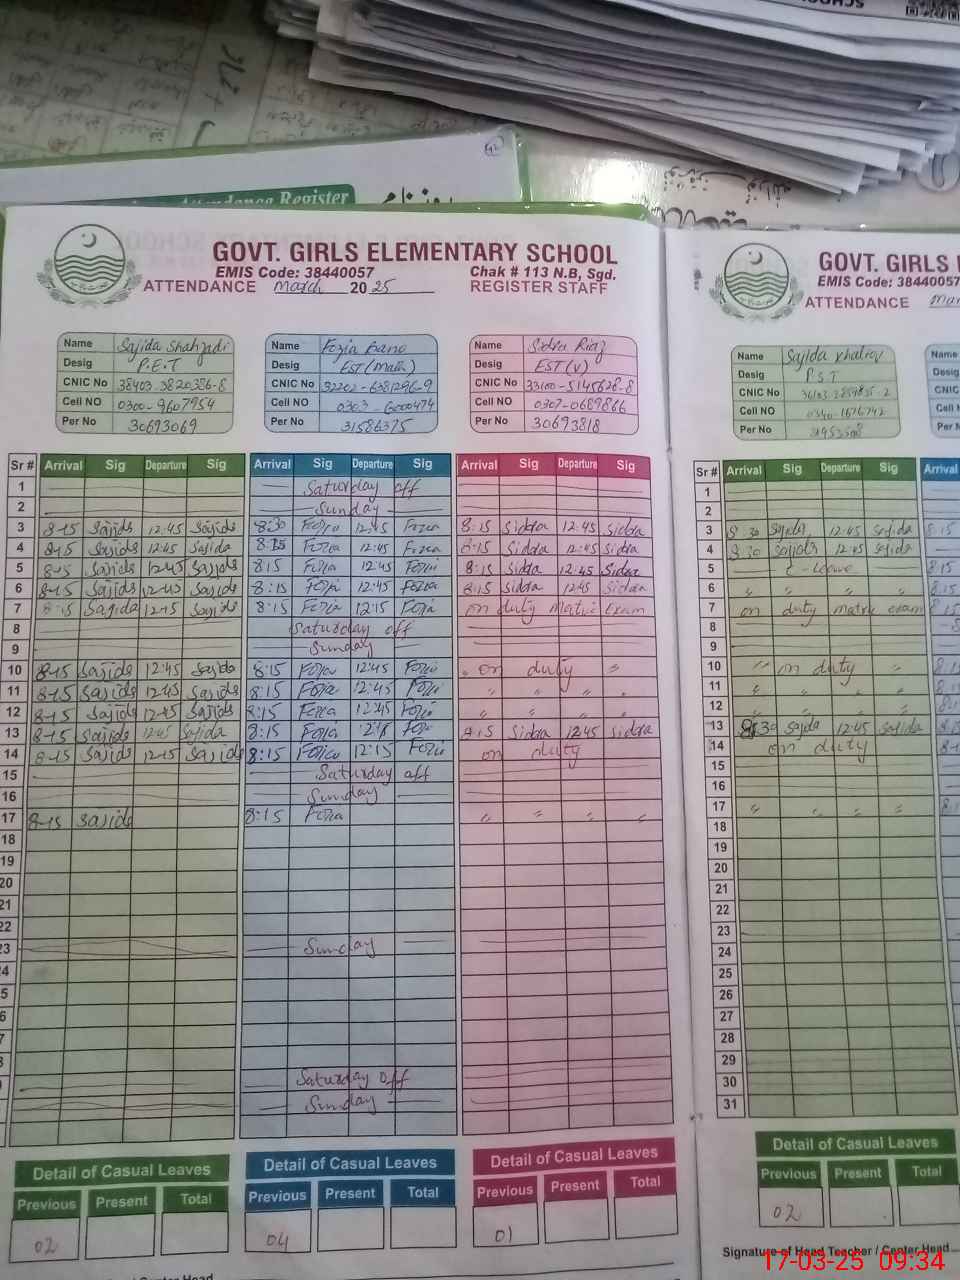 Attendance Register
GOVT. GIRLS ELEMENTARY SCHOOL
EMIS Code: 38440057 Chak # 113 N.B, Sgd.
ATTENDANCE March 2025 REGISTER STAFF
Name Sajida Shahzadi
Desig P.E.T
CNIC No 38403-3820386-8
Cell NO 0300-9607954
Per No 30693069
Name Fozia Bano
Desig EST (Math)
CNIC No 32202-6381296-9
Cell NO 0303-6000474
Per No 31586375
Name Sidra Riaz
Desig EST (V)
CNIC No 33100-5145628-8
Cell NO 0307-0689866
Per No 30693818
Sr # Arrival Sig Departure Sig Arrival Sig Departure Sig Arrival Sig Departure Sig
1 Saturday off
2 Sunday
3 8-15 Sajida 12:45 Sajida 8:30 Fozia 12:45 Fozia 8:15 Sidra 12:45 Sidra
4 8-15 Sajida 12:45 Sajida 8:15 Fozia 12:45 Fozia 8:15 Sidra 12:45 Sidra
5 8-15 Sajida 12-45 Sajida 8:15 Fozia 12:45 Fozia 8:15 Sidra 12:45 Sidra
6 8-15 Sajida 12-45 Sajida 8:15 Fozia 12:45 Fozia 8:15 Sidra 12:45 Sidra
7 8:15 Sajida 12-15 Sajida 8:15 Fozia 12:15 Fozia on duty Matric Exam
8 Saturday off
9 Sunday
10 8-15 Sajida 12:45 Sajida 8:15 Fozia 12:45 Fozia " on duty "
11 8-15 Sajida 12-45 Sajida 8:15 Fozia 12:45 Fozia " " " "
12 8-15 Sajida 12-45 Sajida 8:15 Fozia 12:45 Fozia " " " "
13 8-15 Sajida 12:45 Sajida 8:15 Fozia Fozia 8:15 Sidra 12:45 Sidra
14 8-15 Sajida 12-15 Sajida 8:15 Fozia 12:15 Fozia on duty
15 Saturday off
16 Sunday
17 8-15 Sajida 8:15 Fozia " " " "
18
19
20
21
22
23 Sunday
4
5
6
7
Saturday off
Sunday
Detail of Casual Leaves
Previous Present Total
02
Detail of Casual Leaves
Previous Present Total
04
Detail of Casual Leaves
Previous Present Total
01
GOVT. GIRLS
EMIS Code: 38440057
ATTENDANCE
Name Sajida
Desig P.S.T
CNIC No
Cell NO 0340-1676742
Per No
Name
Desig
CNIC
Cell
Per
Sr # Arrival Sig Departure Sig Arrival
1
2
3 8:30 Sajida 12:45 Sajida 8:15
4 8:30 Sajida 12:45 Sajida
5 C-Leave 8:15
6 " " " " 8:15
7 on duty matric exam 8:15
8
9
10 " on duty "
11 " " " "
12 " " " "
13 8:30 Sajida 12:45 Sajida
14 on duty
15
16
17 " " " "
18
19
20
21
22
23
24
25
26
27
28
29
30
31
Detail of Casual Leaves
Previous Present Total
02
Signature of Head Teacher / Center Head
17-03-25 09:34